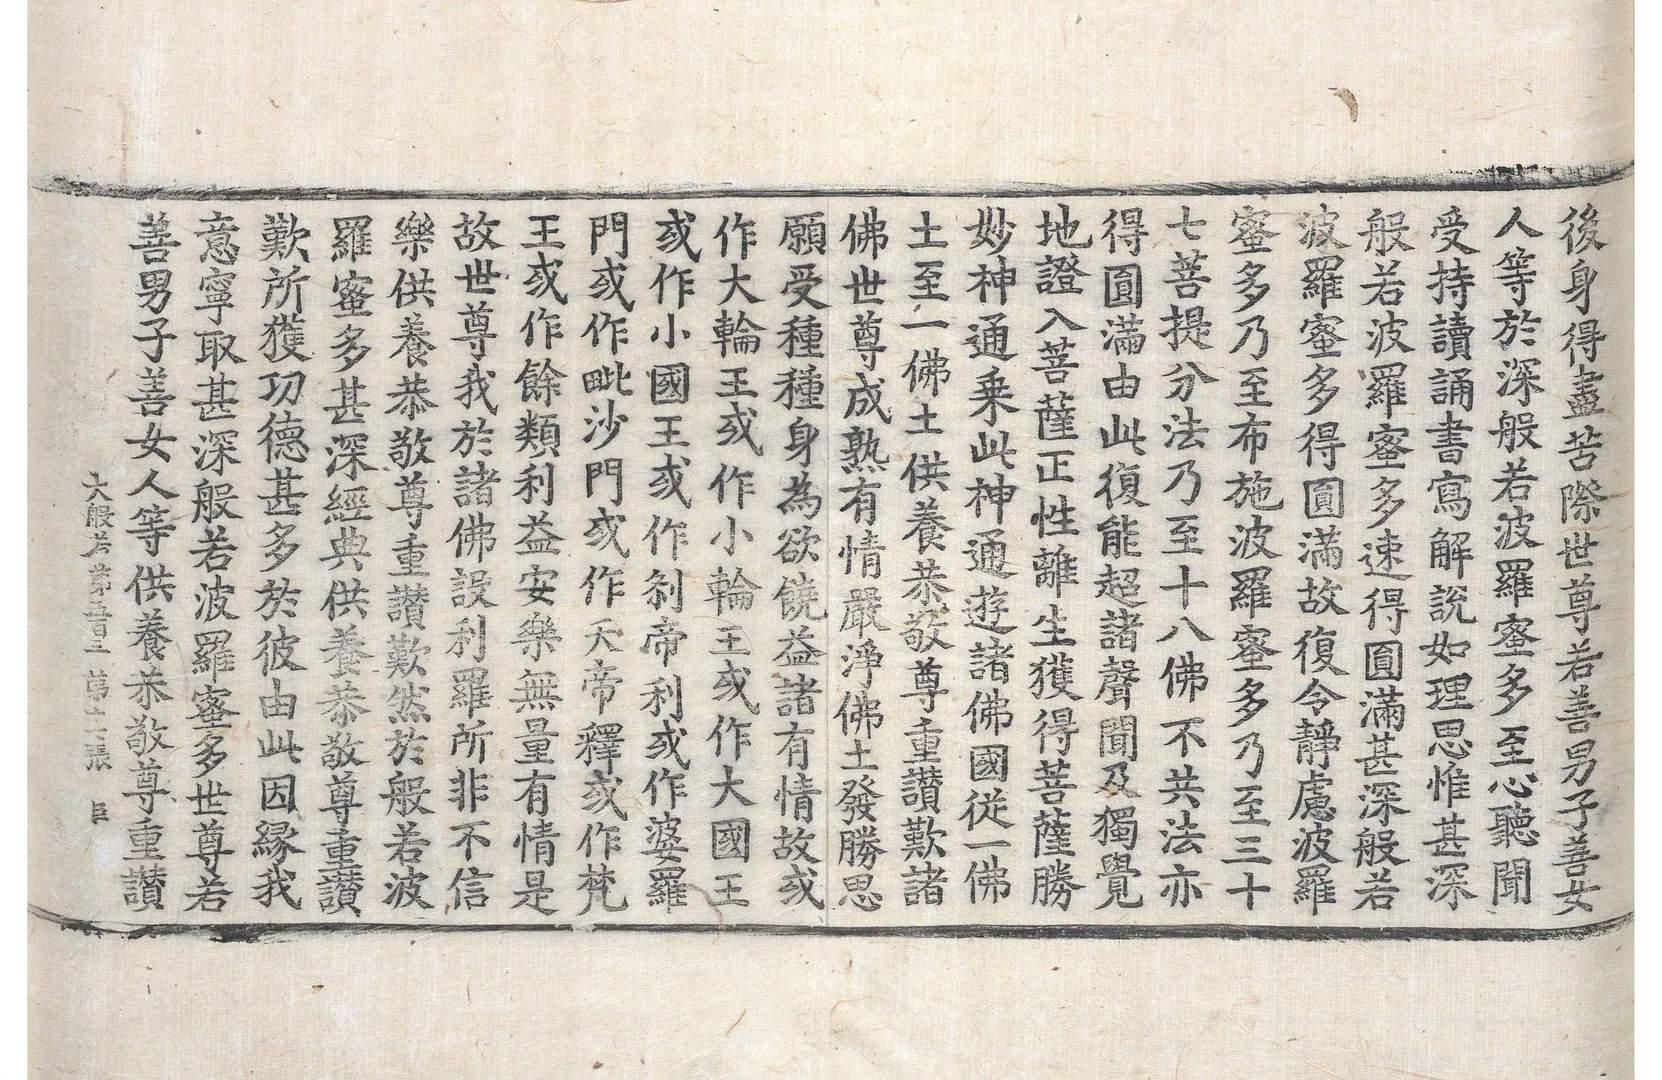 後身得盡苦際世尊若善男子善女
人等於深般若波羅蜜多至心聽聞
受持讀誦書寫解說如理思惟甚深
般若波羅蜜多速得圓滿甚深般若
波羅蜜多得圓滿故復令靜慮波羅
蜜多乃至布施波羅蜜多乃至三十
七菩提分法乃至十八佛不共法亦
得圓滿由此復能超諸聲聞及獨覺
地證入菩薩正性離生獲得菩薩勝
妙神通乗此神通遊諸佛國從一佛
土至一佛土供養恭敬尊重讃歎諸
佛世尊成熟有情嚴淨佛土發勝思
願受種種身為欲饒益諸有情故或
作大輪王或作小輪王或作大國王
或作小國王或作刹帝利或作婆羅
門或作毗沙門或作天帝釋或作梵
王或作餘類利益安樂無量有情是
故世尊我於諸佛設利羅所非不信
樂供養恭敬尊重讃歎然於般若波
羅蜜多甚深經典供養恭敬尊重讃
歎所獲功德甚多於彼由此因縁我
意寧取甚深般若波羅蜜多世尊若
善男子善女人等供養恭敬尊重讃
大般若第五百二 第十七張